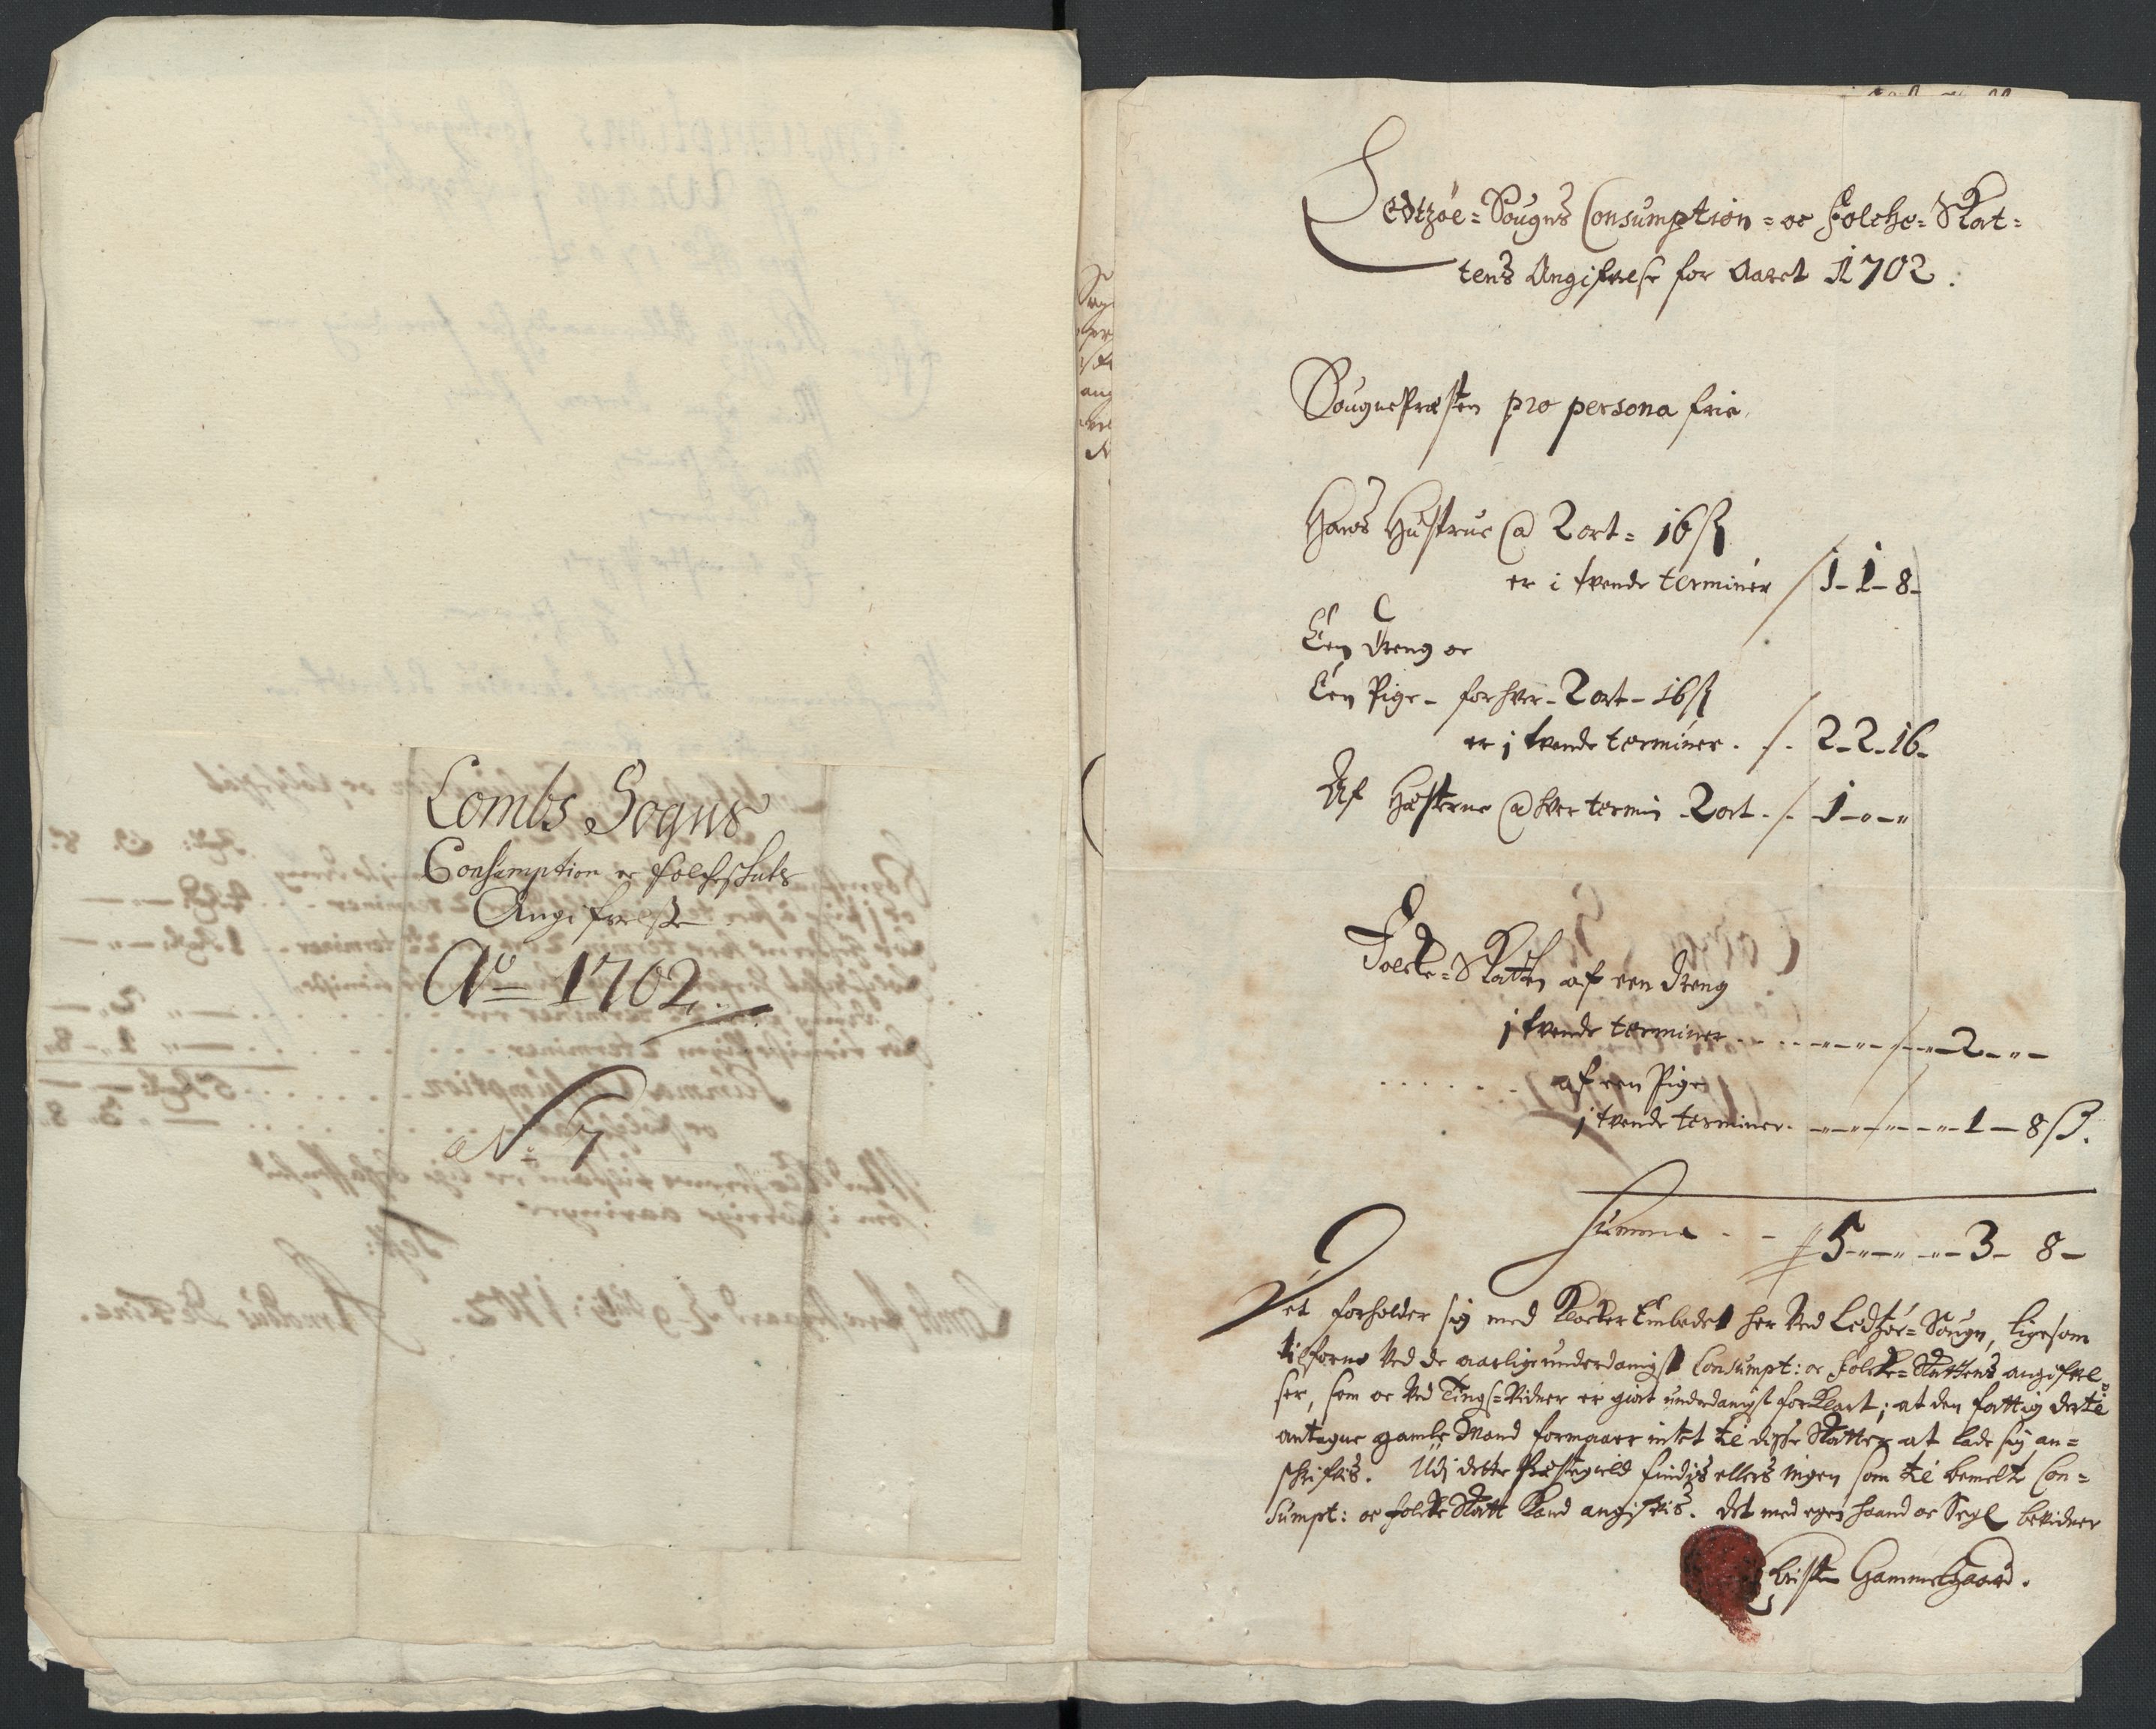 Lombs Sogns
Consumption oc folcheskats
Angifvelse
Ao 1702.
No 7
Ledtzöe=Sougns Consumption= oc Folche=Skat=
tens Angifvelse for Aaret 1702.
Sougnepræsten pro persona frie
Hans Hustrue @ 2 ort= 16 ß
er i tvende terminer / 1-1-8-
Een Dreng oc
Een Pige - for hver - 2 ort - 16 ß
er j tvende terminer . / . 2-2-16-
Af Hæsterne @ hver termin - 2 ort . / . 1-"-"
Folcke=Skatten af een Dreng
j tvende terminer . . . 2 - " -
af een Pige
j tvende terminer. 1 - 8 ß.
Summa - - 5 - " - 3 - 8 -
Det forholder sig med Klocker Embedet her ved Ledtzöe=Sougn, ligesom
tilforne ved de aarlige underdanigst Consumpt: oc Folcke=Skattens angifvel=
ser, som oc ved Tings=Vidner er giort underdanigst forklart; at den fattig dertil
antagne gamle Mand formaaer intet til disse Skatter at lade sig an=
skrifvis. Udj dette Præstegield findis ellers ingen som til bemelte Con=
sumpt: oc folcke Skatt kand angifvis. Det med egen haand oc Segl bekiender
Christen Gammelgaard.